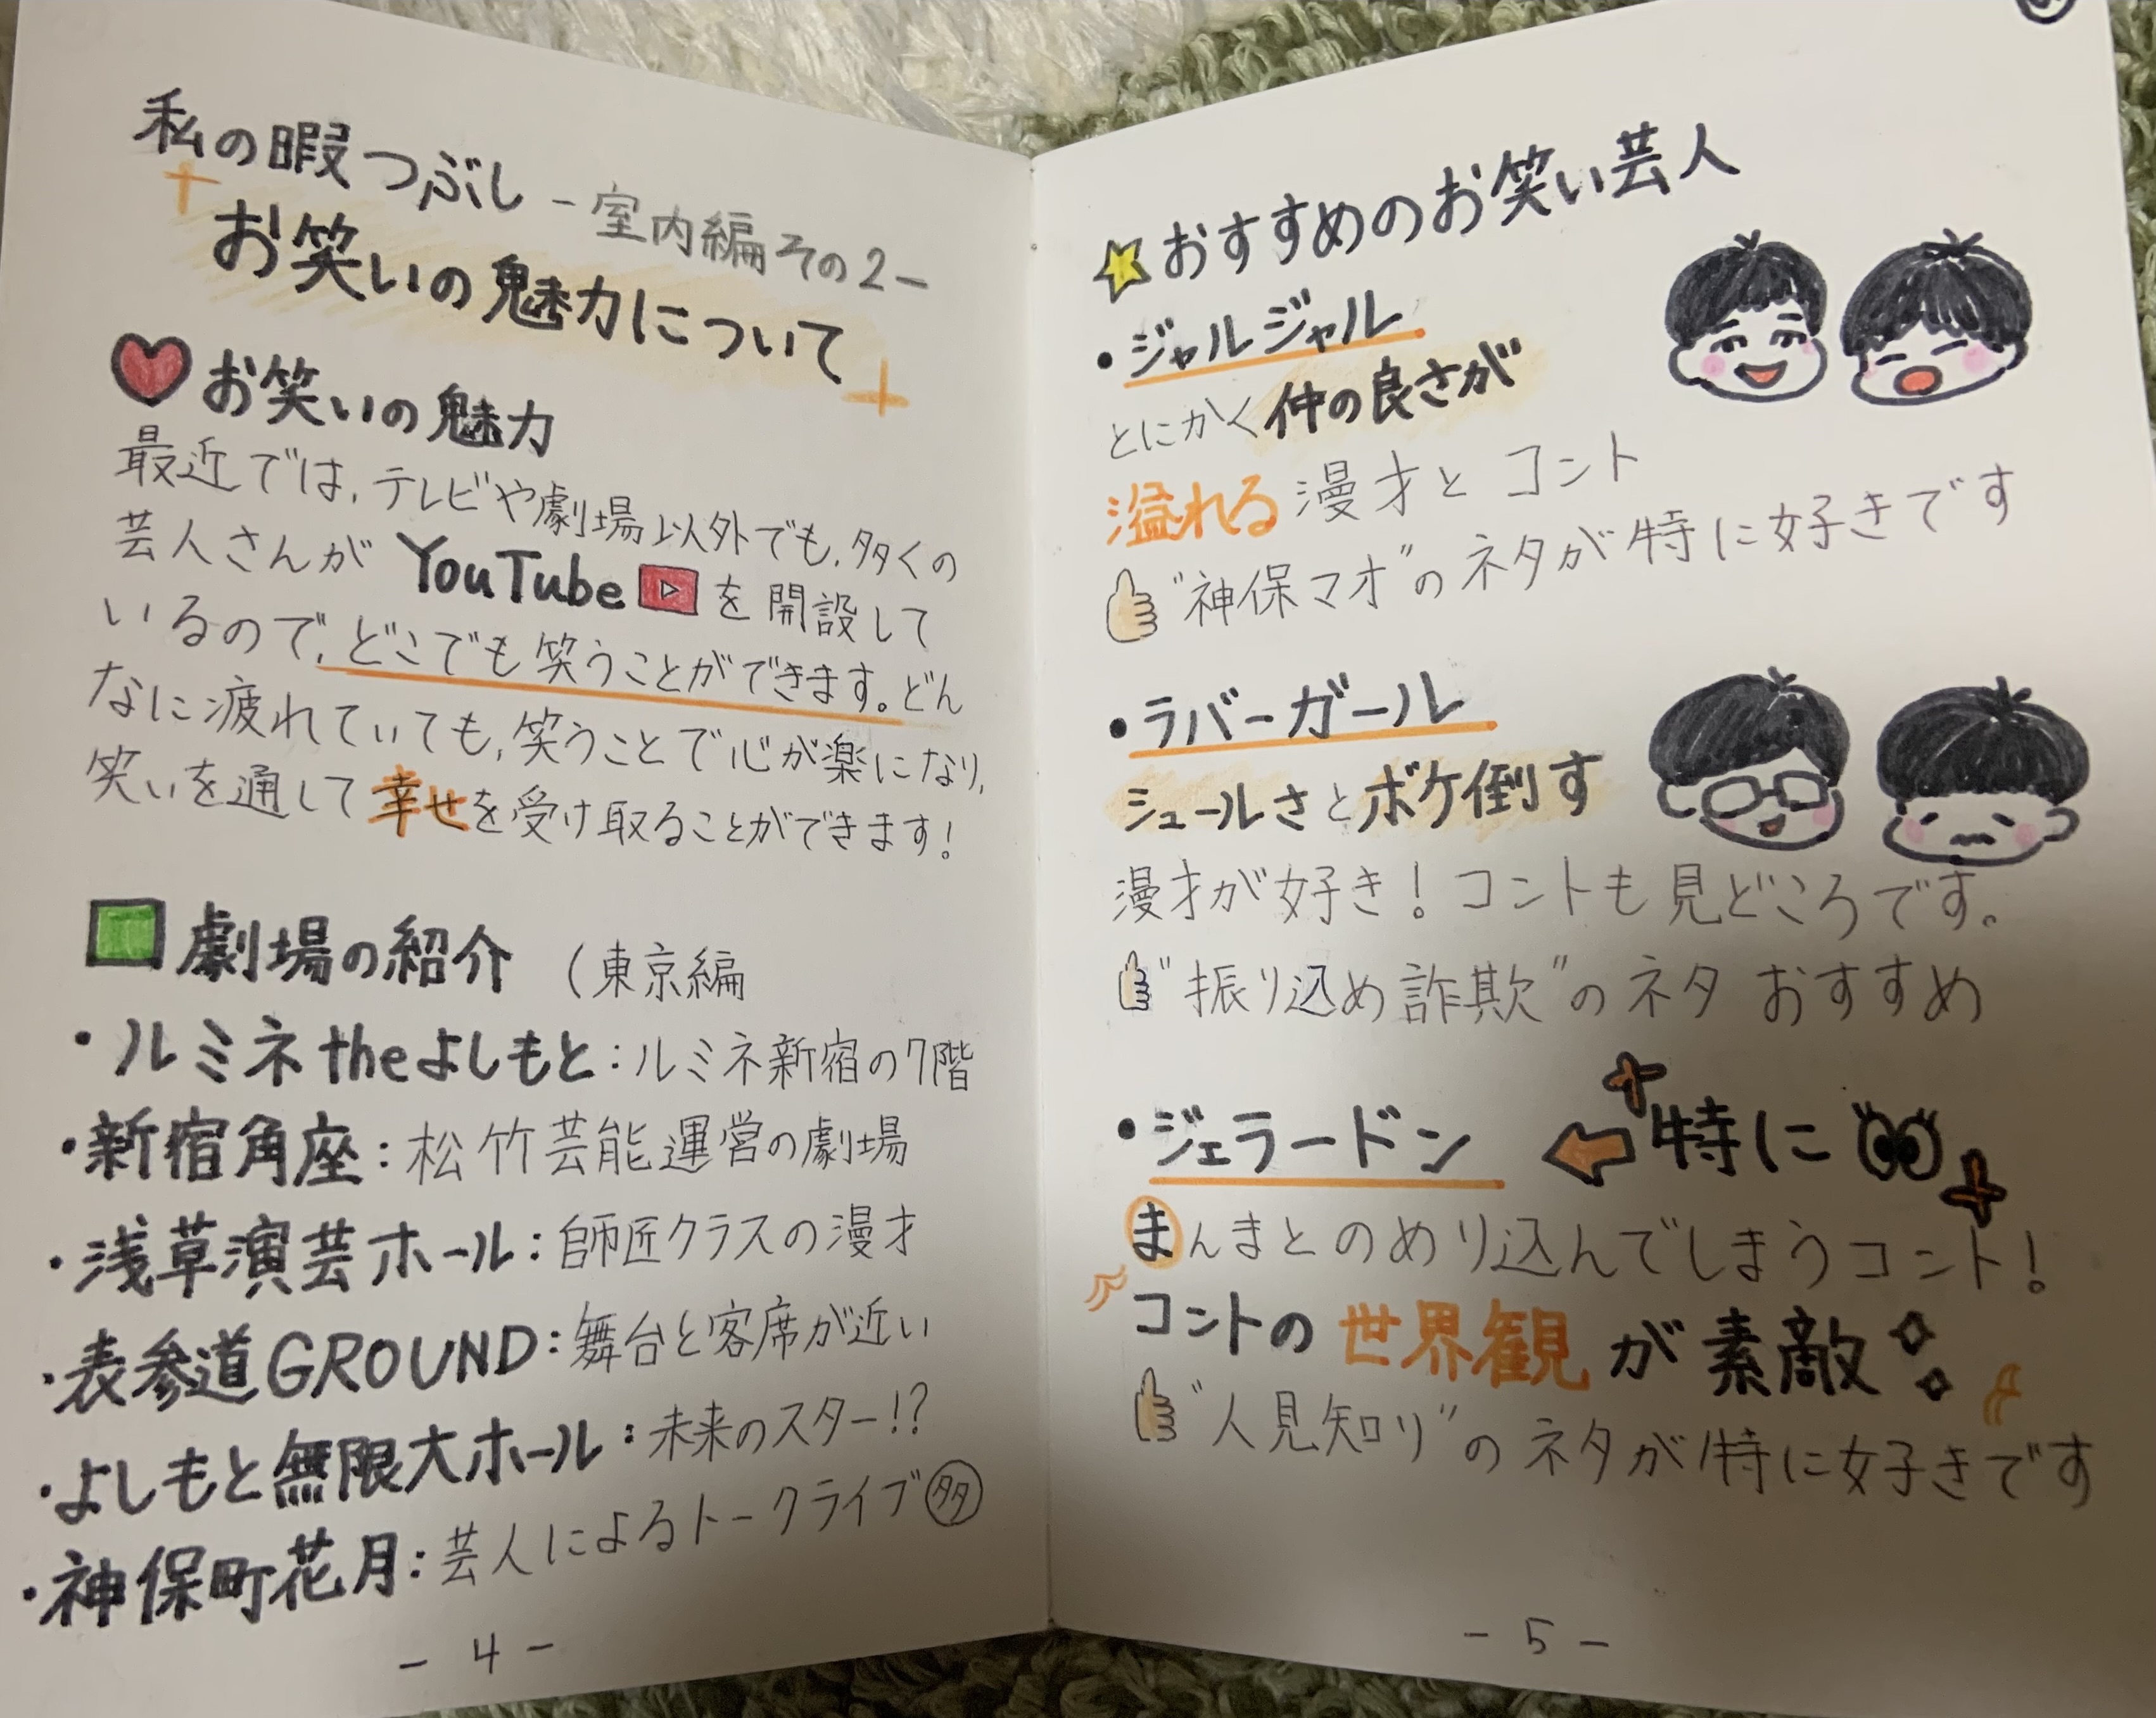 私の暇つぶし -室内編その2-
お笑いの魅力について
お笑いの魅力
最近では,テレビや劇場以外でも,多くの
芸人さんが YouTube を開設して
いるので,どこでも笑うことができます。どん
なに疲れていても,笑うことで心が楽になり,
笑いを通して幸せを受け取ることができます!
劇場の紹介 (東京編
・ルミネtheよしもと:ルミネ新宿の7階
・新宿角座:松竹芸能運営の劇場
・浅草演芸ホール:師匠クラスの漫才
・表参道GROUND:舞台と客席が近い
・よしもと無限大ホール:未来のスター!?
・神保町花月:芸人によるトークライブ多
- 4 -
おすすめのお笑い芸人
・ジャルジャル
とにかく仲の良さが
溢れる漫才とコント
"神保マオ"のネタが特に好きです
・ラバーガール
シュールさとボケ倒す
漫才が好き!コントも見どころです。
"振り込め詐欺"のネタ おすすめ
・ジェラードン 特に
まんまとのめり込んでしまうコント!
コントの世界観が素敵
"人見知り"のネタが特に好きです
- 5 -